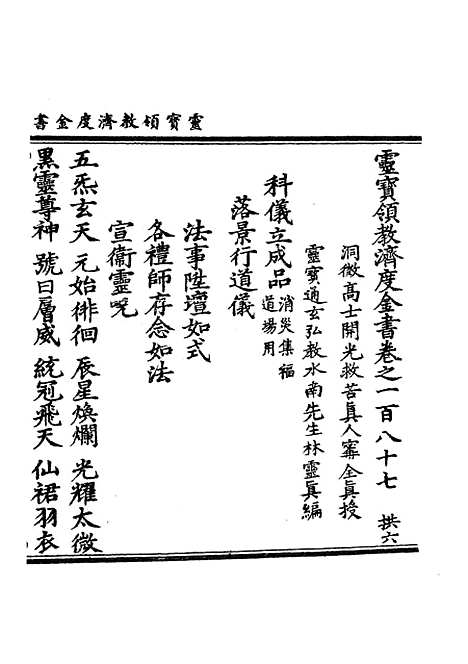 靈寶領教濟度金書
靈寶領教濟度金書卷之一百八十七 拱六
洞微高士開光救苦眞人寗全眞授
靈寶通玄弘教水南先生林靈眞編
科儀立成品 消災集福道場用
落景行道儀
法事陞壇如式
各禮師存念如法
宣衞靈呪
五炁玄天 元始徘徊 辰星煥爛 光耀太微
黑靈尊神 號曰層威 統冠飛天 仙裙羽衣